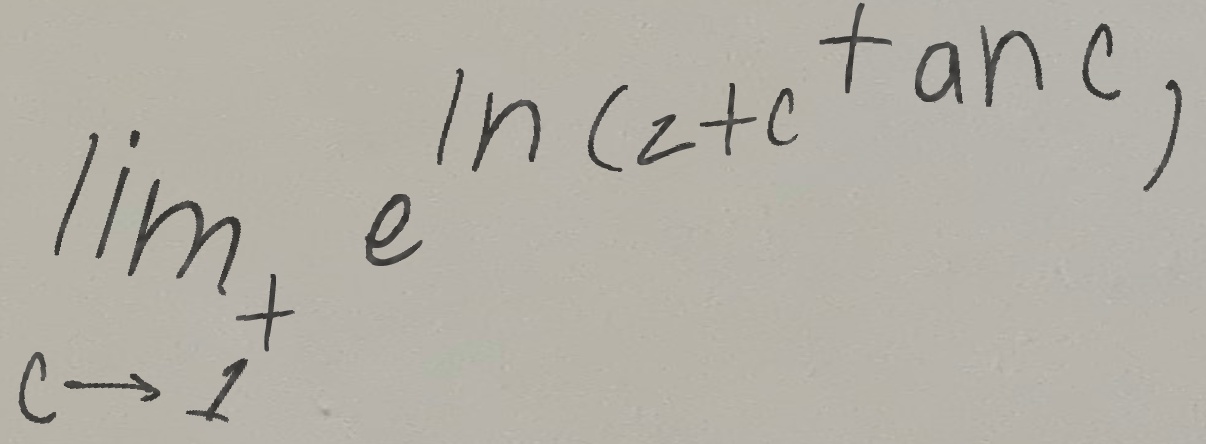 lim_{c → 1^+} e^{ln(z+c^{tan c})}